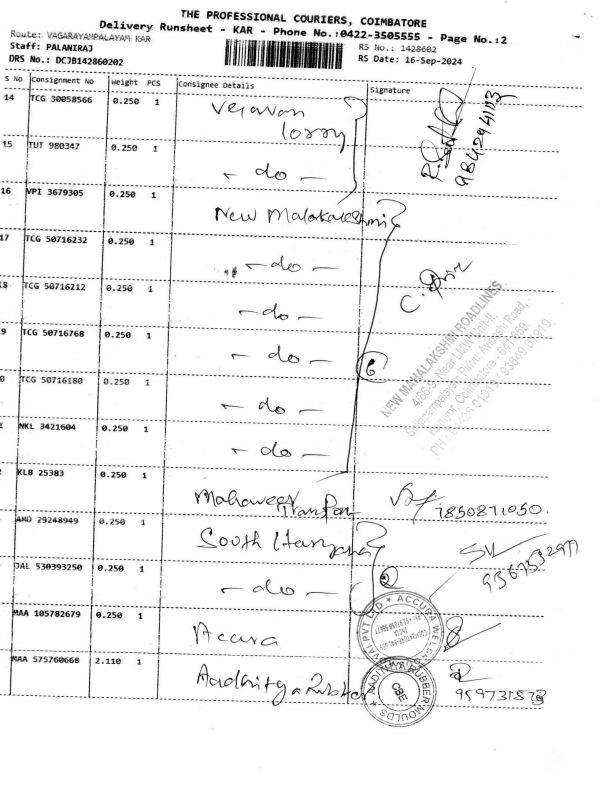 THE PROFESSIONAL COURIERS, COIMBATORE
Delivery Runsheet - KAR - Phone No.:0422-3505555 - Page No.:2
Route: VAGARAYAMPALAYAM KAR
RS No.: 1428602
Staff: PALANIRAJ
RS Date: 16-Sep-2024
DRS No.: DCJB142860202
S No Consignment No Weight PCS Consignee Details Signature
14 TCG 30058566 0.250 1
lorry
9842941113
15 TUT 980347 0.250 1 - do -
16 VPI 3679305 0.250 1 New
17 TCG 50716232 0.250 1 - do -
8 TCG 50716212 0.250 1 - do -
9 TCG 50716768 0.250 1 - do - 6
0 TCG 50716180 0.250 1 - do -
NKL 3421604 0.250 1 - do -
NEW MAHALAKSHMI ROADLINES
KLB 25383 0.250 1
7850871050.
AMD 29248949 0.250 1 South Haryana
JAL 530393250 0.250 1 - do - 2
MAA 105782679 0.250 1 Accura
MAA 575760668 2.110 1 Aadhitya Rubber
CBE